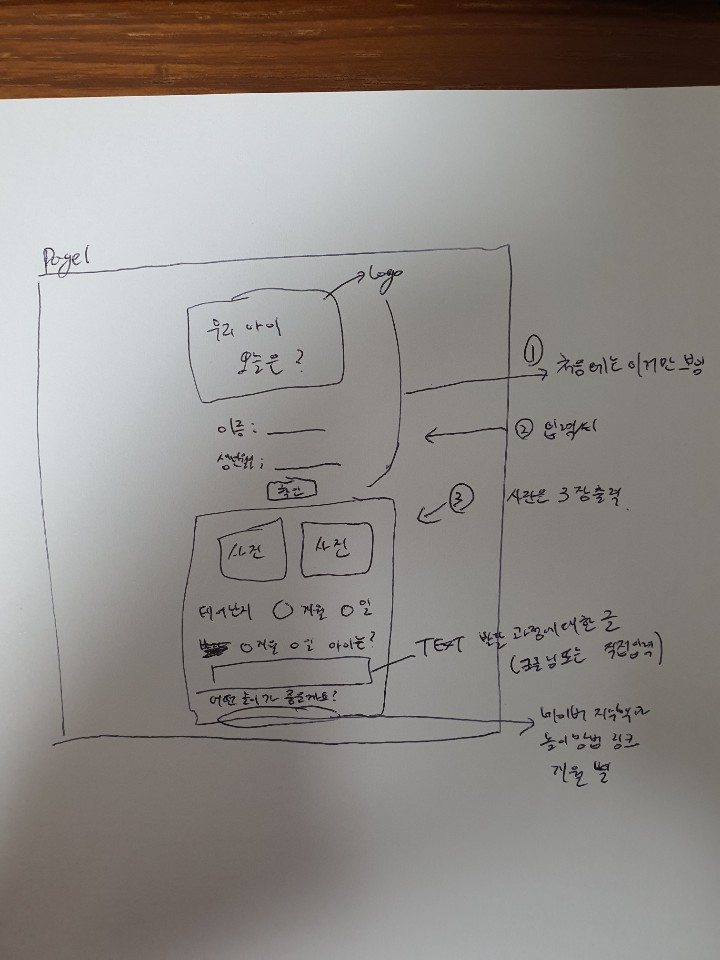 Page1
logo
우리 아이
오늘은?
① 처음에는 이거만 보임
이름:
생년월:
② 입력시
확인
③ 사진은 3장 출력.
사진 사진
태어난지 ○ 개월 ○ 일
○개월 ○일 아이는?
TEXT 발달 과정에 대한 글
(크롤링 또는 직접입력)
어떤 놀이가 좋을까요?
네이버 지식백과
놀이방법 링크
개월 별